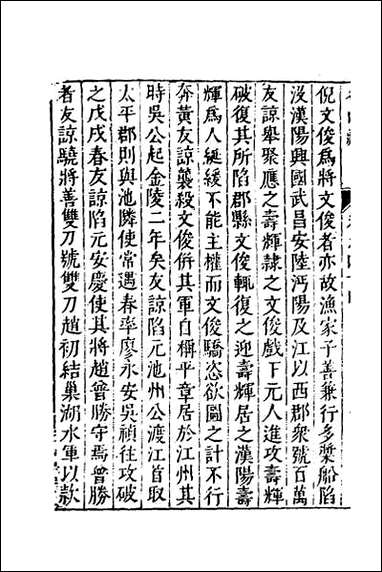 倪文俊爲將文俊者亦故漁家子善兼行多槳船陷
沒漢陽興國武昌安陸沔陽及江以西郡衆號百萬
友諒舉聚應之壽輝隷之文俊戲下元人進攻壽輝
破復其所陷郡縣文俊輒復之迎壽輝居之漢陽壽
輝爲人綎緩不能主權而文俊驕恣欲圖之計不行
奔黃友諒襲殺文俊併其軍自稱平章居於江州其
時吳公起金陵二年矣友諒陷元池州公渡江首取
太平郡則與池隣使常遇春率廖永安吳禎往攻破
之戊戌春友諒陷元安慶使其將趙曾勝守焉曾勝
者友諒驍將善雙刀號雙刀趙初結巢湖水軍以款